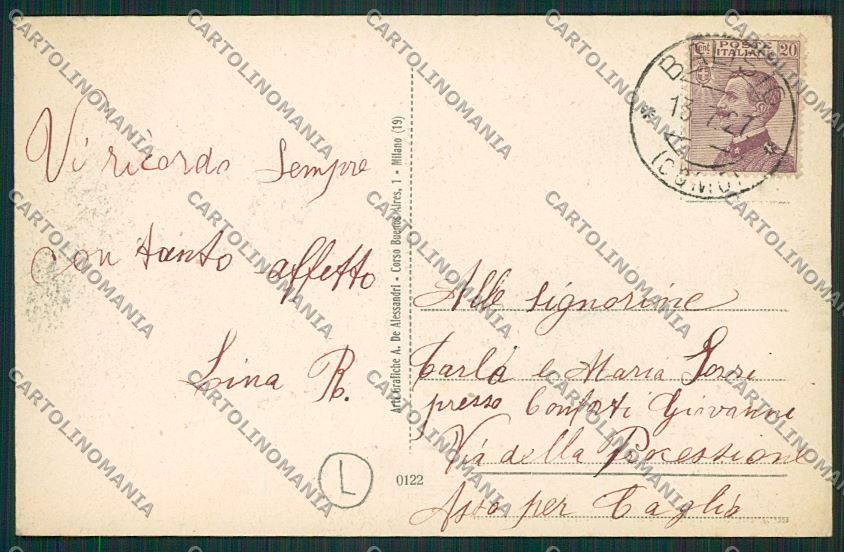 Vi ricordo sempre
con tanto affetto
Lina R.
L
Arti Grafiche A. De Alessandri - Corso Buenos Aires, 1 - Milano (19)
0122
Cent. POSTE ITALIANE 20
13 7 27
(COMO)
Alle Signorine
Carla e Maria
presso Giovanni
Via della Processione
Asso per Caglio
CARTOLINOMANIA